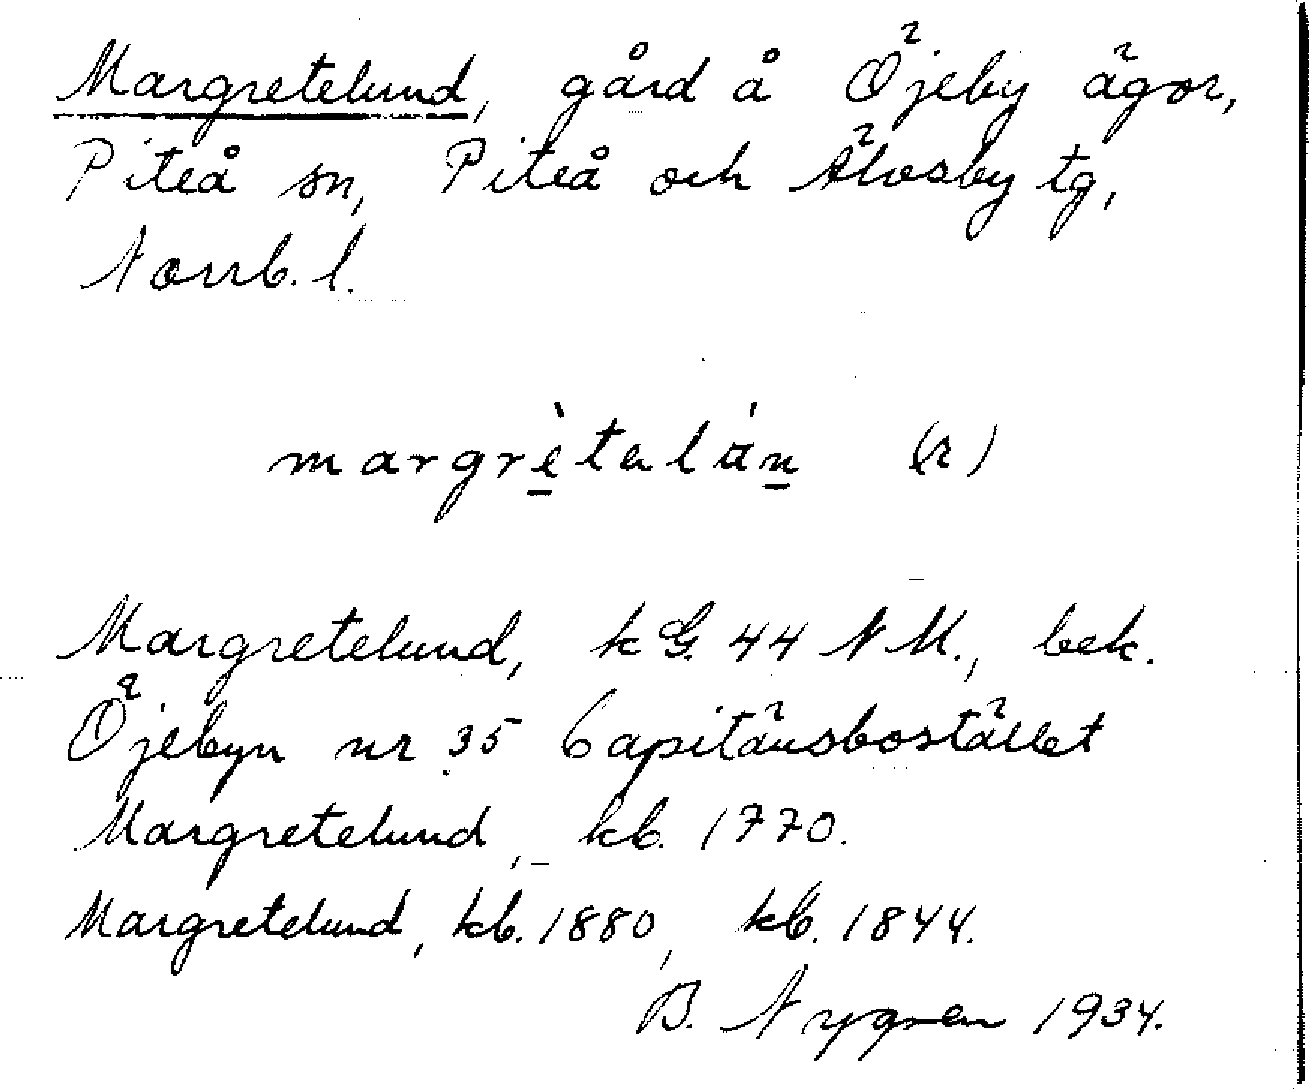 Margretelund, gård å Öjeby ägor,
Piteå sn, Piteå och Älvsby tg,
Norrb. l.
margrètalán (r)
Margretelund, k G. 44 N M., bek.
Öjebyn nr 35 Capitänsbostället
Margretelund, kb. 1770.
Margretelund, kb. 1880, kb. 1844.
B. Nygren 1934.